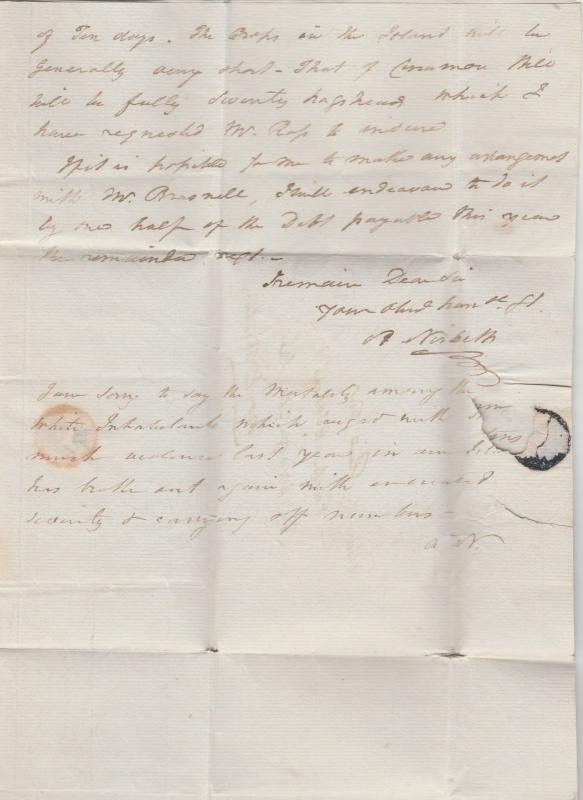 of Ten days. The Crops in the Island will be
Generally very short - That of Cinnamon Hill
will be fully Seventy hogsheads which I
have requested Mr. Ross to insure
If it is possible for me to make any arrangemet
with Mr. , I will endeavour to do it
by one half of the Debt payable this year
the remainder next. -
I remain Dear Sir
Your Obed
Nisbett
I am sorry to say the Mortality among the
white Inhabitants which raged with
much violence last year in
has broke out again with increased
severity & carrying off numbers -
A N.